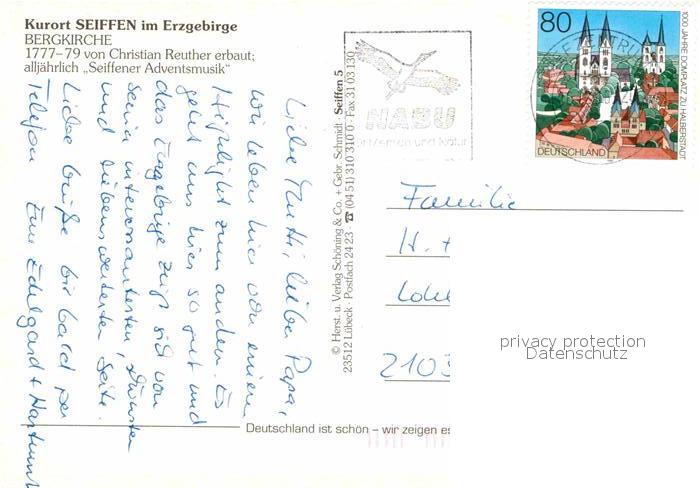 Kurort SEIFFEN im Erzgebirge
BERGKIRCHE
1777–79 von Christian Reuther erbaut;
alljährlich „Seiffener Adventsmusik“
Liebe Mutti, lieber Papa,
wir leben hier von einem
Highlight zum andern. Es
geht uns hier so gut und
das Erzgebirge zeigt sich von
seiner interessantesten,
und liebenswertesten Seite.
Liebe Grüße bis bald per
Telefon Eure Edelgard + Hartmut
© Herst. u. Verlag Schöning & Co. + Gebr. Schmidt · Seiffen 5
23512 Lübeck · Postfach 24 23 · ☎ (04 51) 310 310 0 · Fax 31 03 130
NABU
für Mensch und Natur
80
1000 JAHRE DOMPLATZ ZU HALBERSTADT
DEUTSCHLAND
Familie
H. +
2103
privacy protection
Datenschutz
Deutschland ist schön – wir zeigen es